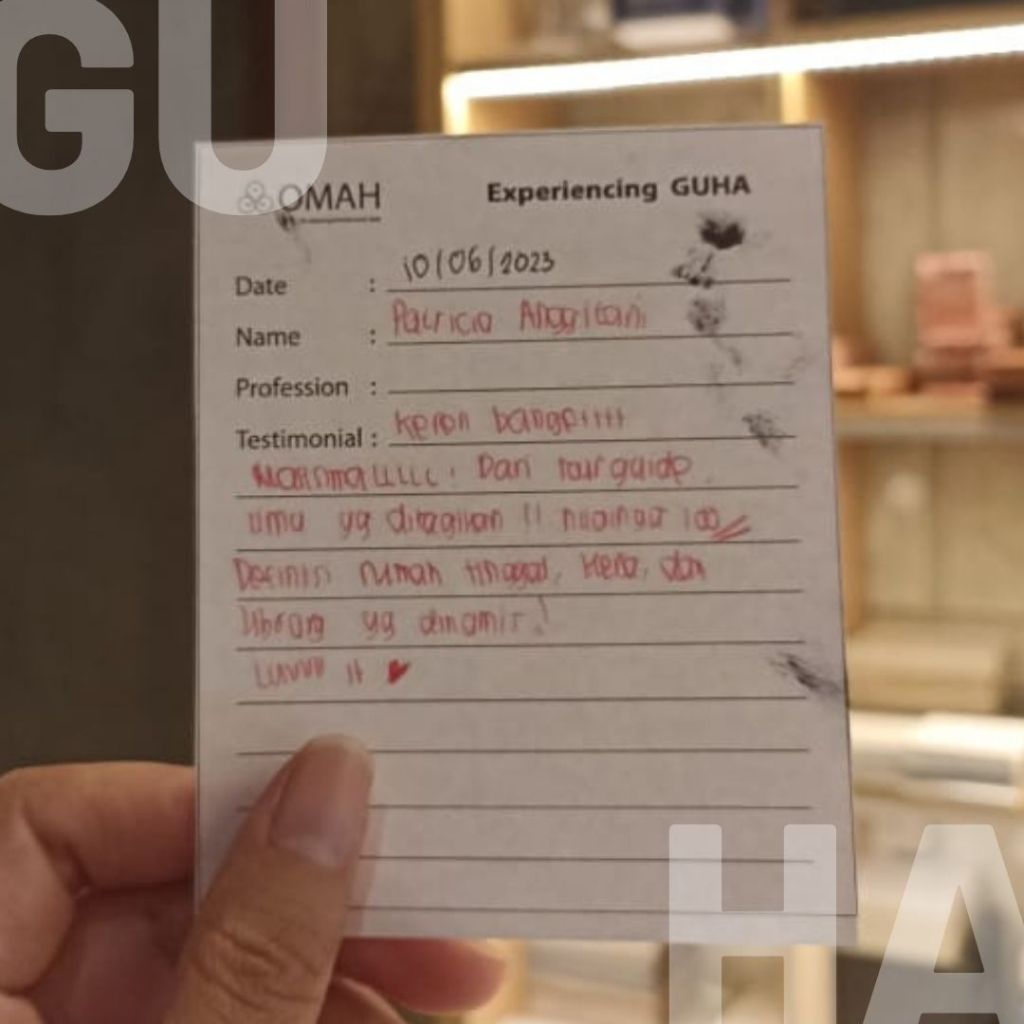 GU
OMAH
Experiencing GUHA
Date : 10/06/2023
Name : Patricia Anggitani
Profession :
Testimonial : Keren bangetttt
Dari tour guide
ilmu yg dibagikan !! nilainya 100
Definisi rumah tinggal, kerja, dan
library yg dinamis!
Luvvv it ♥
HA